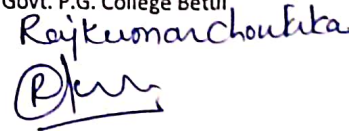 Govt. P.G. College Betul
Rajkumar Choukika